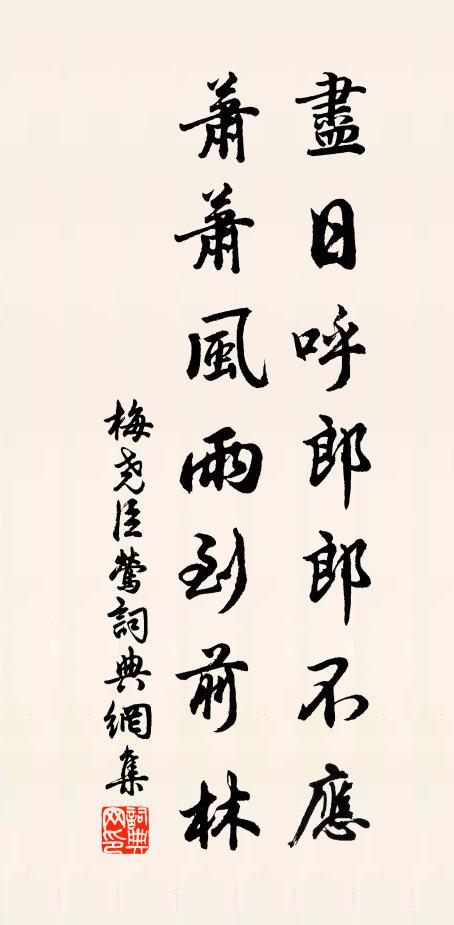 盡日呼郎郎不應
蕭蕭風雨到前林
梅堯臣鶯詞典網集
詞典網印